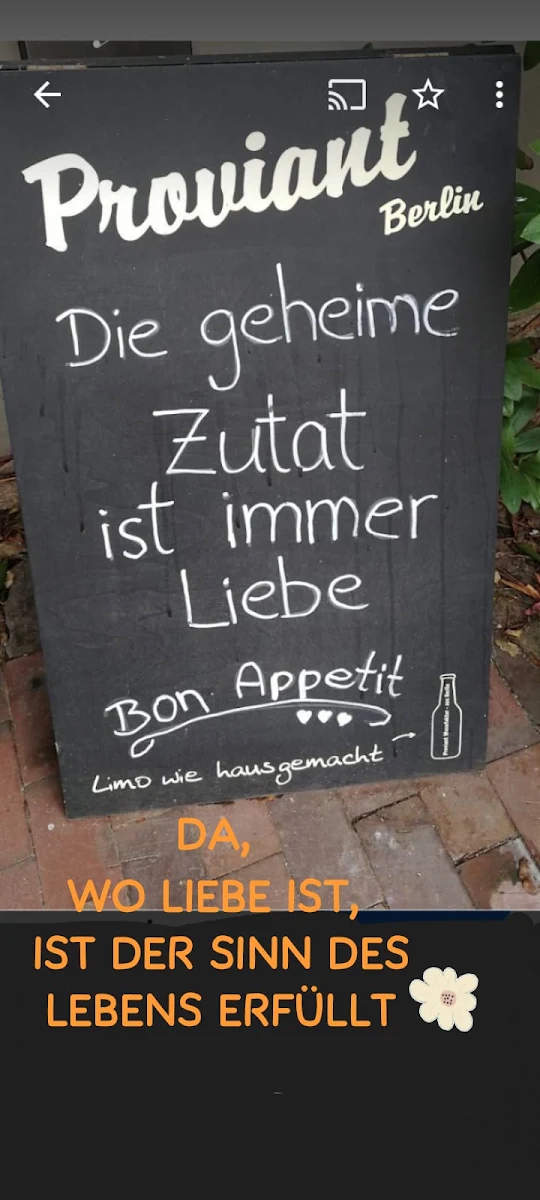 Proviant
Berlin
Die geheime
Zutat
ist immer
Liebe
Bon Appetit
Limo wie hausgemacht
DA,
WO LIEBE IST,
IST DER SINN DES
LEBENS ERFÜLLT